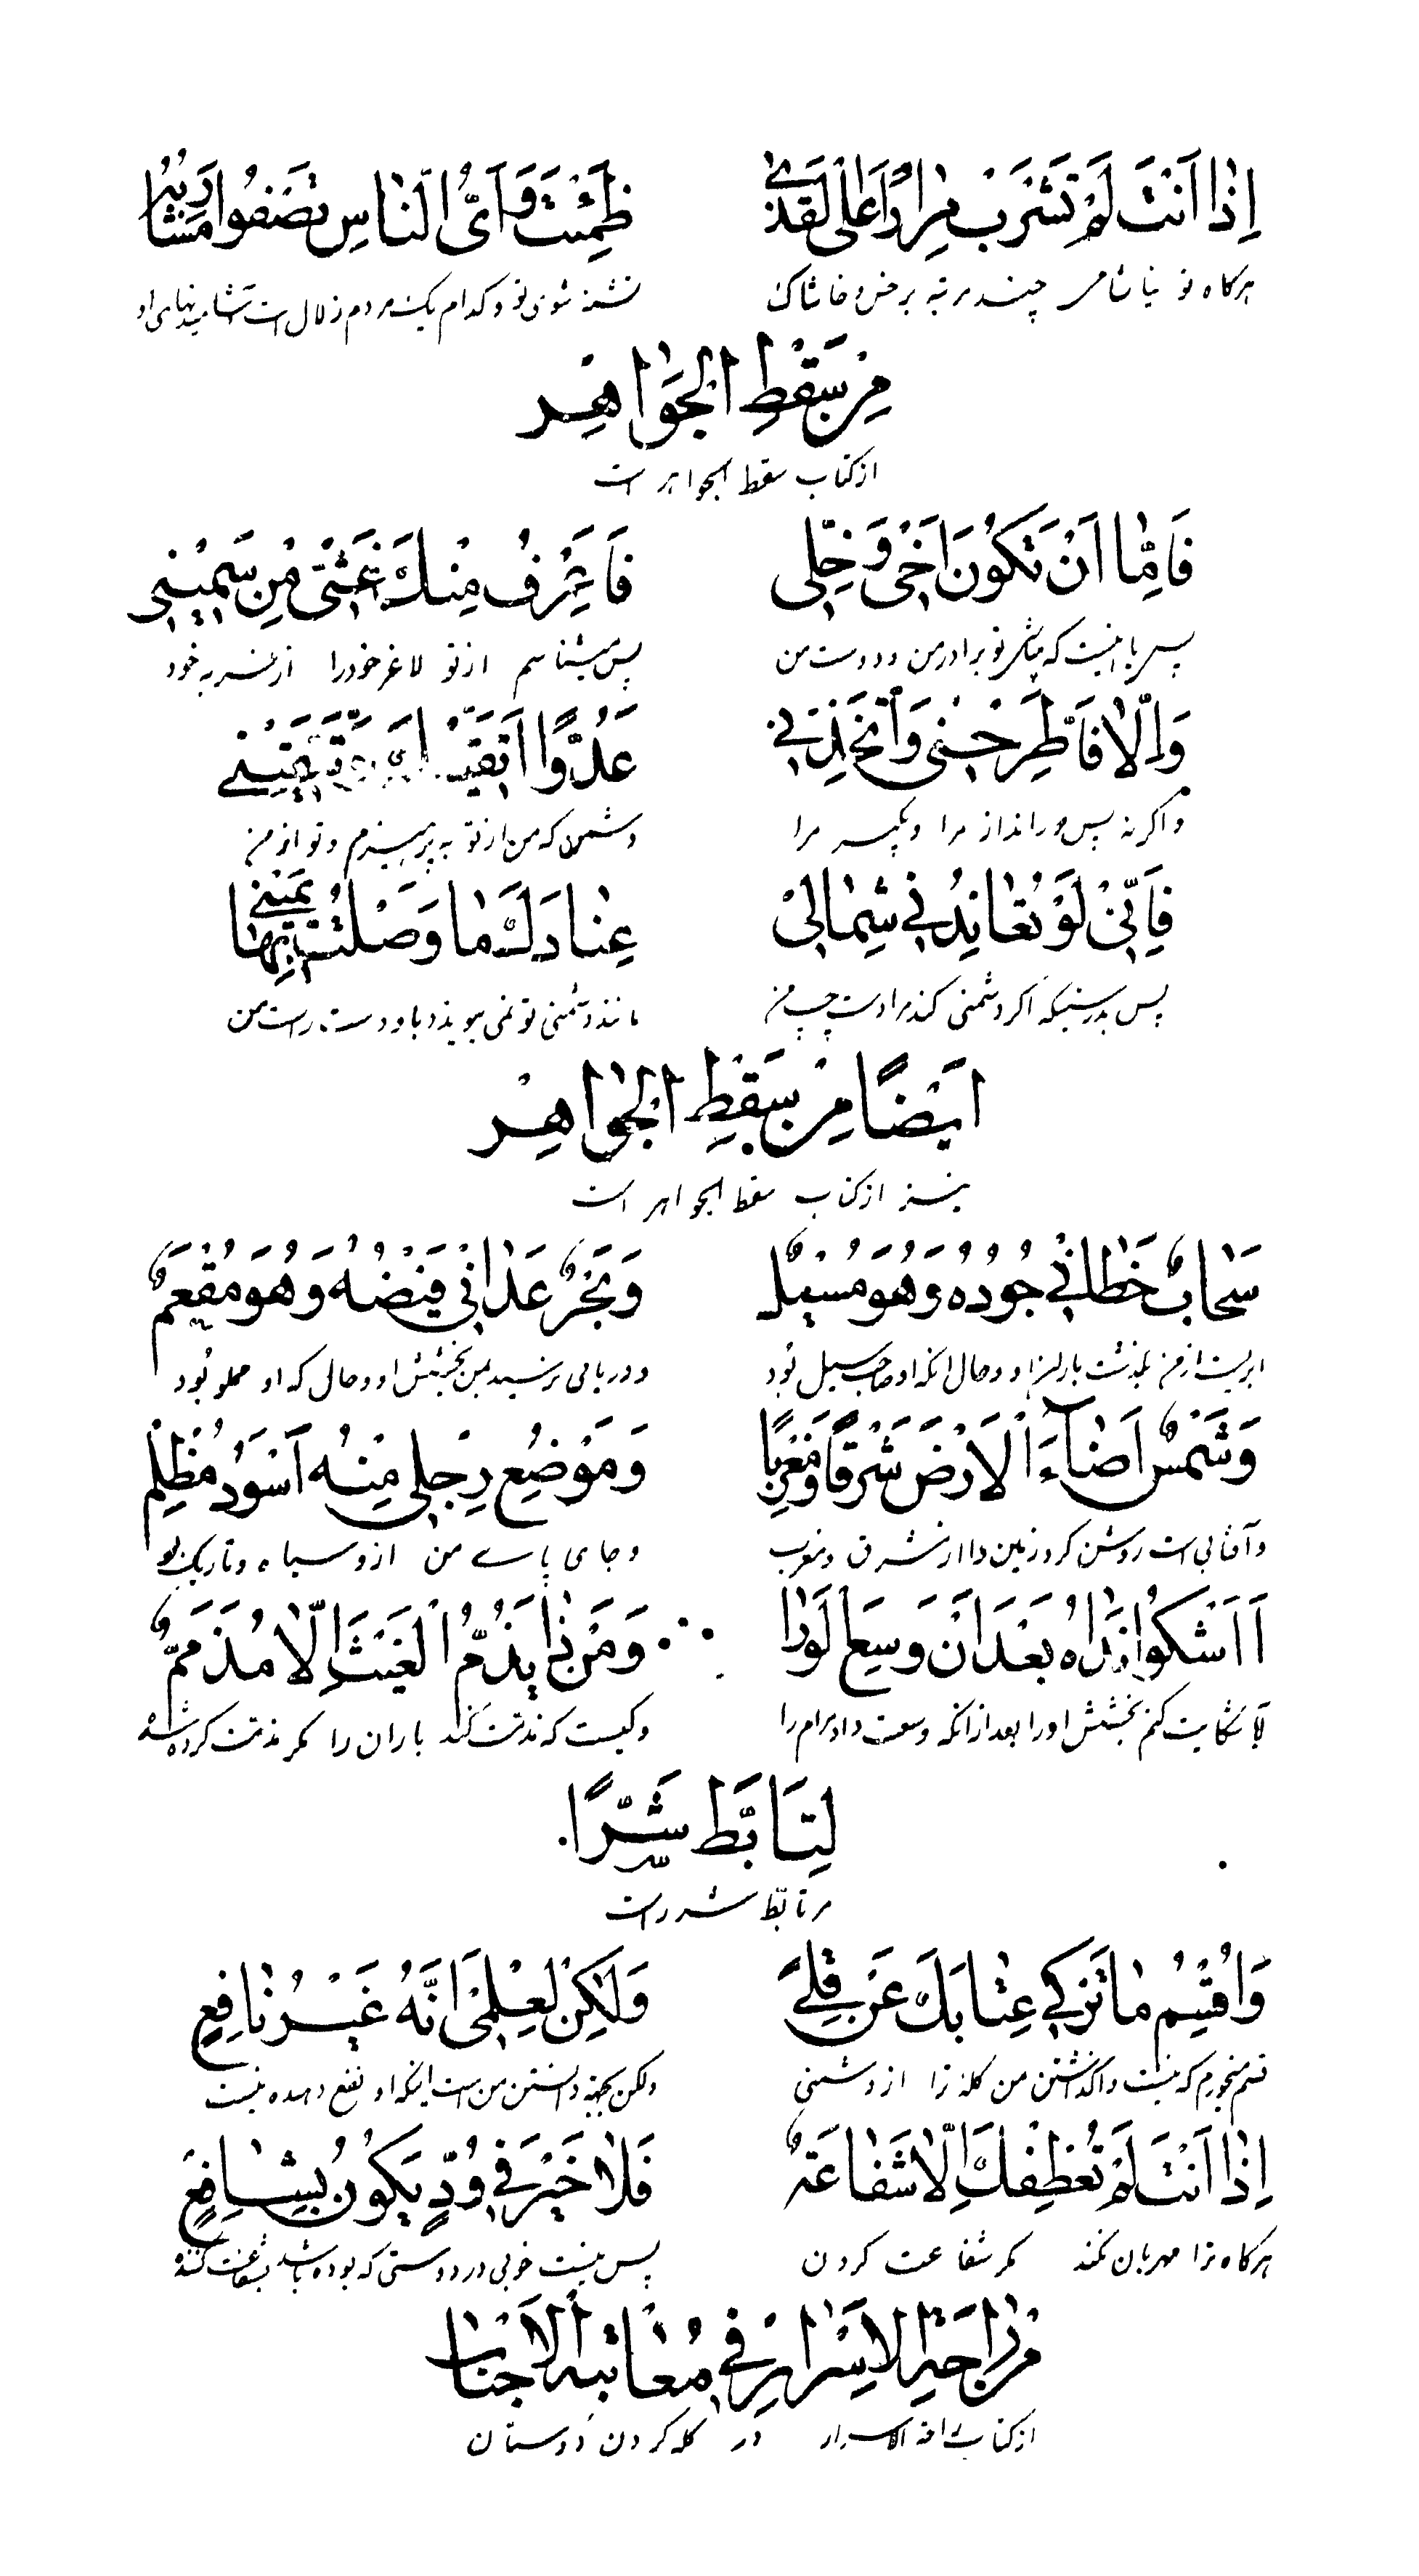 اِذٰا اَنْتَ لَمْ تَشْرَبْ مِرٰارًا عَلَى الْقَذٰى ظَمِئْتَ وَ اَىُّ النّٰاسِ تَصْفُوا مَشٰارِبُهُ
هرگاه تو نیاشامی چند مرتبه بر خس و خاشاک تشنه شوی تو و کدام یک مردم زلال است آشامیدنهای او
مِنْ سَقَطِ الْجَوٰاهِرِ
از کتاب سقط الجواهر است
فَاِمّٰا اَنْ تَكُونَ اَخٖى وَ خِلّٖى فَاَعْرِفُ مِنْكَ غَثّٖى مِنْ سَمٖينٖى
پس یا اینست که میباشی تو برادر من و دوست من پس میشناسم از تو لاغر خود را از فربه خود
وَ اِلّٰا فَاطَّرِحْنٖى وَ اتَّخِذْنٖى عَدُوًّا اَتَّقٖيكَ وَ تَتَّقٖينٖى
و اگر نه پس دور انداز مرا و بگیر مرا دشمن که من از تو بپرهیزم و تو از من
فَاِنّٖى لَوْ تُعٰانِدُنٖى شِمٰالٖى عِنٰادَكَ مٰا وَصَلْتُ بِهٰا يَمٖينٖى
پس بدرستیکه اگر دشمنی کند مرا دست چپ من مانند دشمنی تو نمی پیوندد با او دست راست من
اَيْضًا مِنْ سَقَطِ الْجَوٰاهِرِ
نیز از کتاب سقط الجواهر است
سَحٰابٌ خَطٰانٖى جُودُهُ وَ هُوَ مُسْبِلٌ وَ بَحْرٌ عَدٰانٖى فَيْضُهُ وَ هُوَ مُفْعَمٌ
ابریست از من بگذشت باران او و حال آنکه او صاحب سیل بود و دریائی نرسید بمن بخشش او و حال که او مملو بود
وَ شَمْسٌ اَضٰاءَ الْاَرْضَ شَرْقًا وَ مَغْرِبًا وَ مَوْضِعُ رِجْلٖى مِنْهُ اَسْوَدُ مُظْلِمٌ
و آفتابی است روشن کرد زمین را از شرق و مغرب و جای پای من از او سیاه و تاریک بود
اَاَشْكُوا نَدٰاهُ بَعْدَ اَنْ وَسِعَ الْوَرٰى وَ مَنْ ذٰا يَذُمُّ الْغَيْثَ اِلّٰا مُذَمَّمٌ
آیا شکایت کنم بخشش او را بعد از آنکه وسعت داد مرام را و کیست که مذمت کند باران را مگر مذمت کرده شده
لِتَاَبَّطَ شَرًّا
مر تابط شر راست
وَ اُقْسِمُ مٰا تَرْكٖى عِتٰابَكَ عَنْ قِلًى وَ لٰكِنْ لِعِلْمٖى اَنَّهُ غَيْرُ نٰافِعٍ
قسم میخورم که نیست واگذاشتن من گله ترا از دشمنی ولکن بجهة دانستن من است اینکه او نفع دهنده نیست
اِذٰا اَنْتَ لَمْ تُعْطِفْكَ اِلّٰا شَفٰاعَةٌ فَلٰا خَيْرَ فٖى وُدٍّ يَكُونُ بِشٰافِعٍ
هرگاه ترا مهربان نکند مگر شفاعت کردن پس نیست خوبی در دوستی که بوده باشد بشفاعت کننده
مِنْ رٰاحَةِ الْاَسْرٰارِ فٖى مُعٰاتَبَةِ الْاَحْبٰابِ
از کتاب راحة الاسرار در گله کردن دوستان